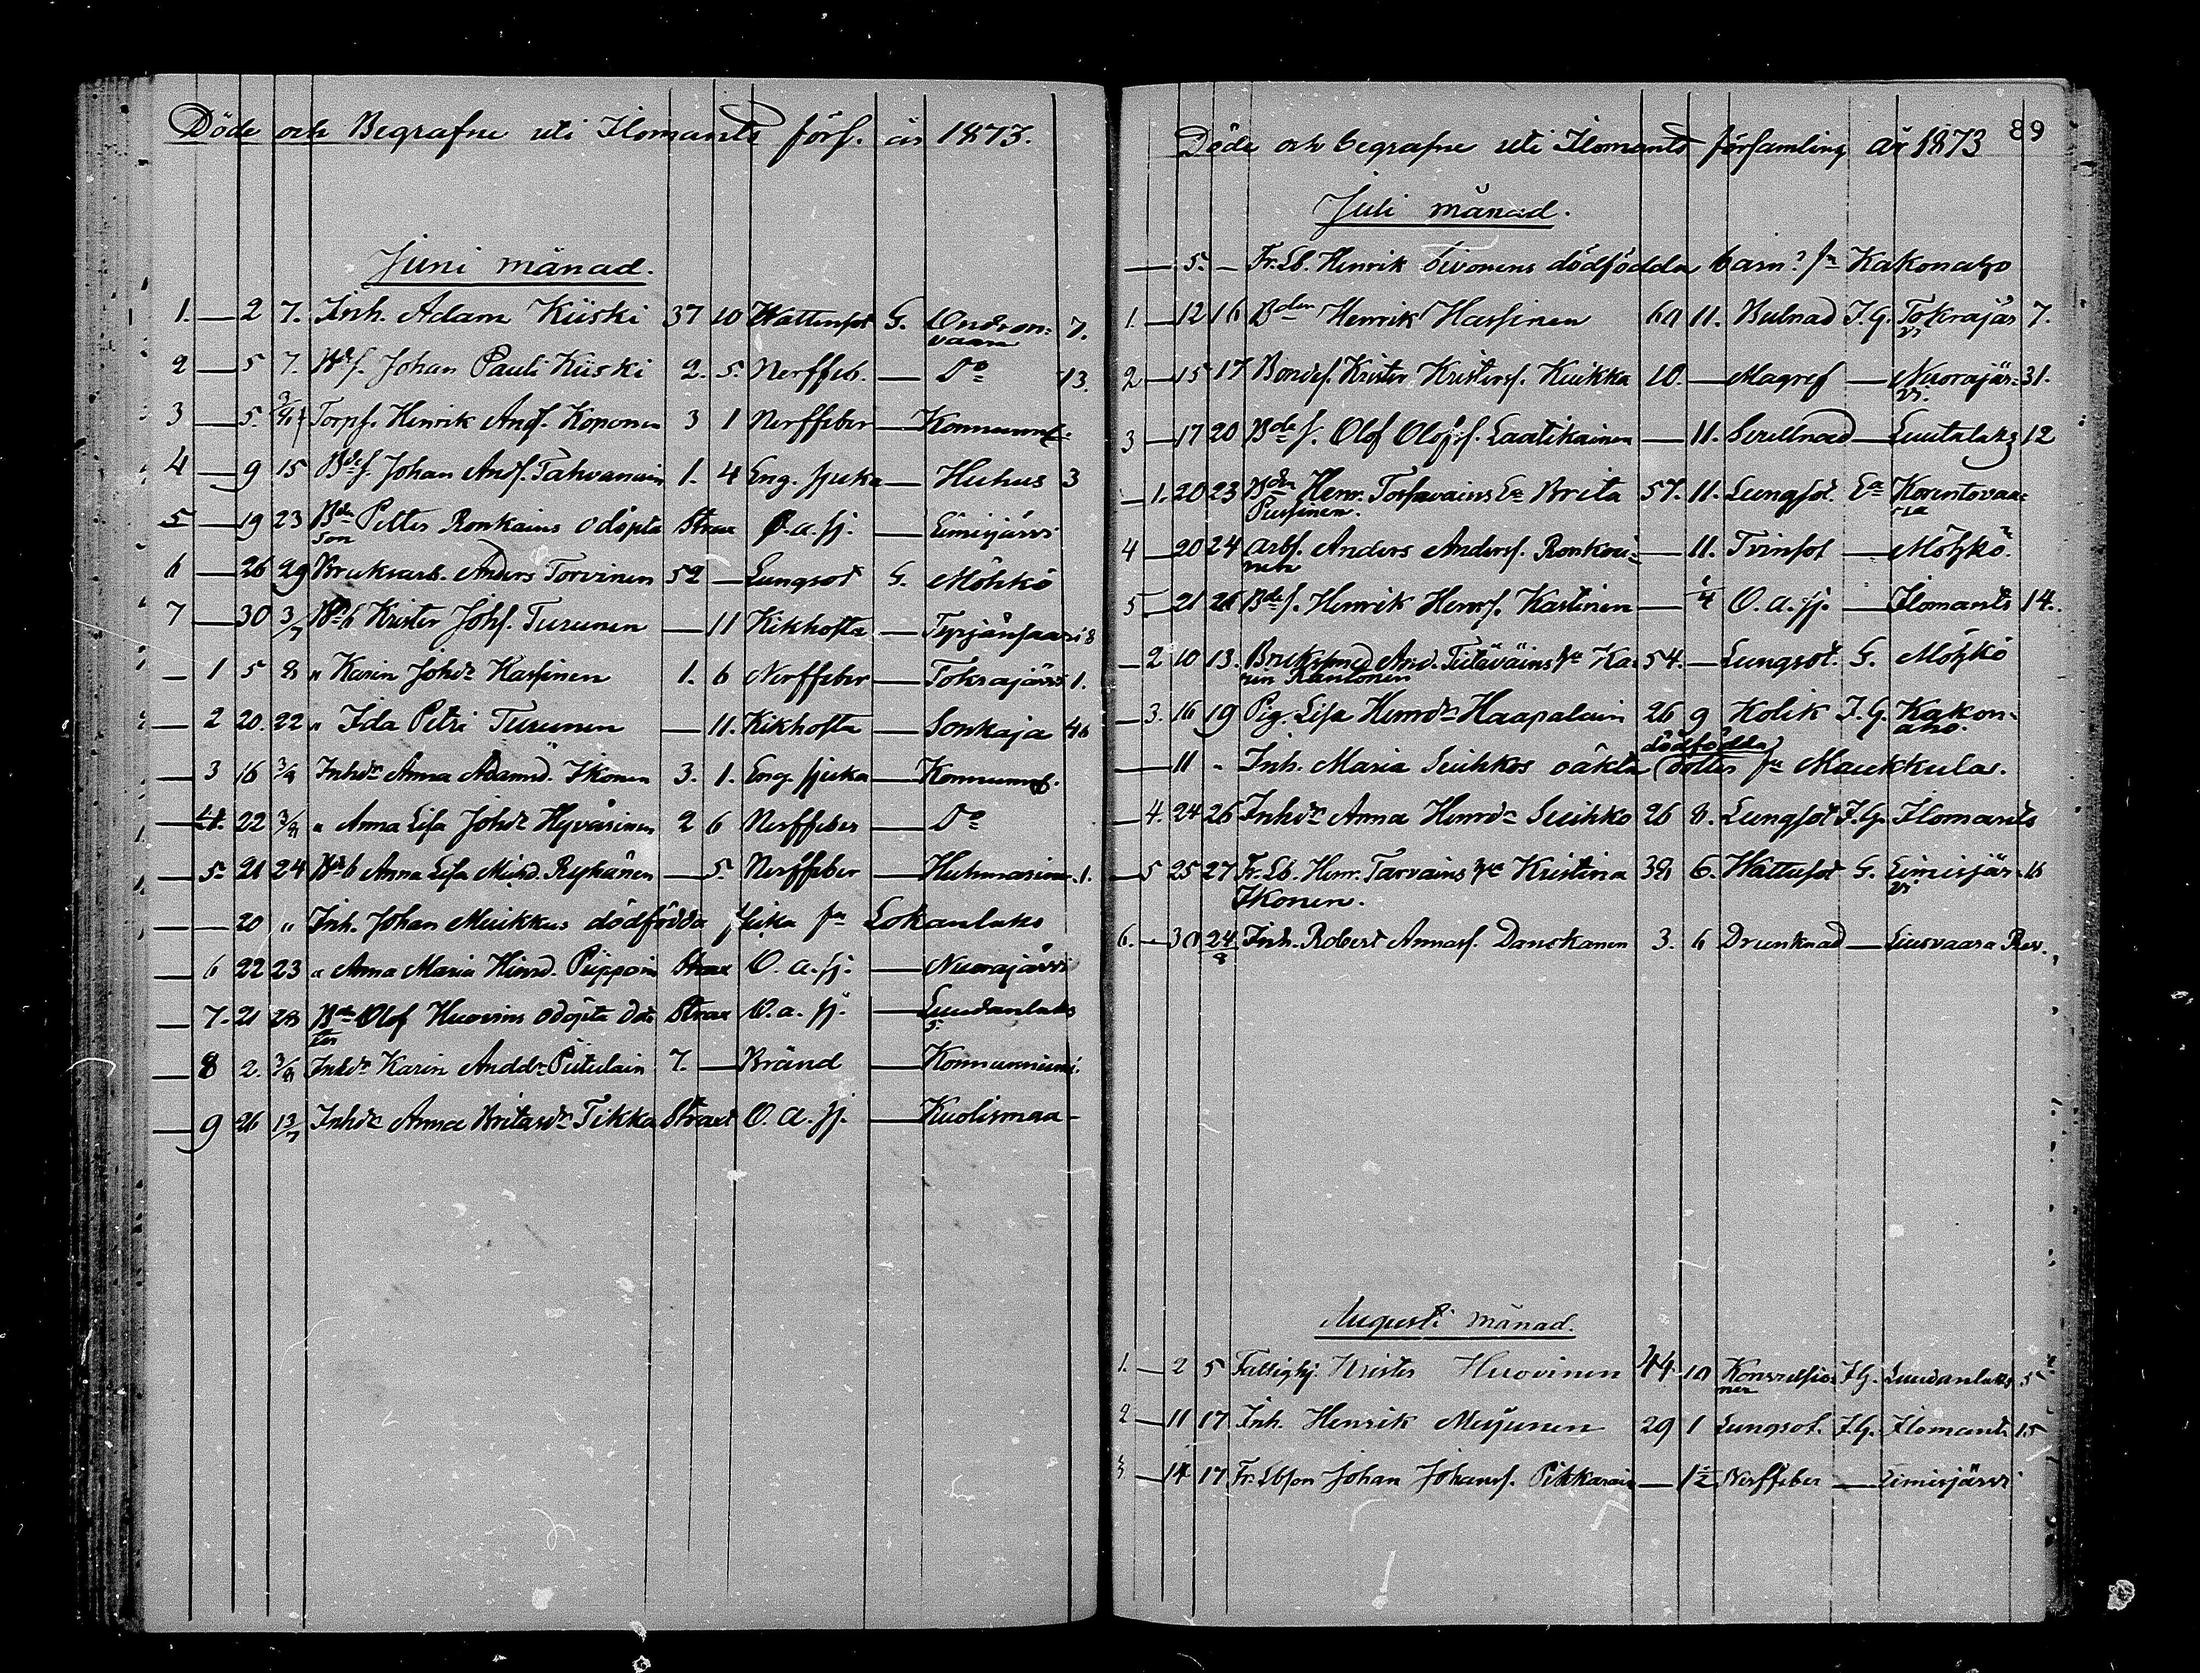 Döde och Begrafne uti Ilomants förs. år 1873.
Juni månad.
1. — 2 7. Inh. Adam Kiiski 37 10 Wattusot G. Ondron=
vaara 7.
2 — 5 7. Bds. Johan Pauli Kiiski 2. 5. Nerffeb. — Do 13.
3 — 5. Torps. Henrik Ands. Koponen 3 1 Nerffeber — Konnunn.
4 — 9 15 Bds. Johan Ands. Tahvanain 1. 4 Eng. sjuka — Huhus 3
5 — 19 23 Bdn Petter Ronkains odöpta Strax O. a. sj. — Liimijärvi
son
6 — 26 29 Bruksarb. Anders Torvinen 52 — Lungsot G. Möhkö
7 — 30 3/7 Bdb Krister Johs. Turunen — 11 Kikhosta — Tyrjänsaari 8
— 1 5 8 " Karin Johdr Hassinen 1. 6 Nerffeber — Tokrajärvi 1.
— 2 20. 22 " Ida Petri Turunen — 11. Kikhosta — Sonkaja 46
— 3 16 3/8 Inhdr Anna Adamd. Ikonen 3. 1. Eng. sjuka — Konnunn.
— 4. 22 3/8 " Anna Lisa Johdr Hyvärinen 2 6 Nerffeber — Do
— 5 21 24 Bdb Anna Lisa Mihd. Reykänen — 5. Nerffeber — 1.
— — 20 " Inh. Johan Muikkus dödfödda flicka frn Lokanlaks
— 6 22 23 " Anna Maria Hinrd. Piippoin Strax O. a. sj. — Nuorajärvi
— 7. 21 28 Bdn Olof Huovins odöpta dot Strax O. a. sj. — Luudanlaks
ter 5.
— 8 2. 3/8 Inhdr Karin Anddr Piitulain 7. — Bränd — Konnunniemi.
— 9 26 13/7 Inhdr Anna Britasdr Tikka Strax O. a. sj. — Kuolismaa
Döde och begrafne uti Ilomants församling år 1873 89
Juli månad.
— 5. — Fr. Lb. Henrik Toivonens dödfödda barn? frn Kakonaho
1. — 12 16 Bdn Henrik Hassinen 60 11. Bulnad I. G. Tokrajär 7.
vi
2 — 15 17 Bonds. Krister Kristers. Kuikka 10. — Magref — Nuorajär= 31.
vi.
3 — 17 20 Bds. Olof Olofs. Laatikainen — 11. — Luutalaks 12
— 1. 20 23 Bdn Henr. Torsvains Ea Brita 57. 11. Lungsot. Ea Korentovaa=
Pussinen. ra
4 — 20 24 Arbs. Anders Anders. Ronkai= — 11. Tvinsot — Möhkö.
nen
5 — 21 26 Bds. Henrik Henrs. Kastinen — 1/4 O. a. sj. — Ilomants 14.
— 2 10 13. Bruksmed And. Tiitäväins Ha Ka= 54. — Lungsot. G. Möhkö
rin Rantonen
— 3. 16 19 Pig. Lisa Henrdr Haapalain 26 9 Kolik I. G. Kakon=
aho.
dödfödda
— 11 " Inh. Maria Suihkos oäkta dotter frn Maukkula.
— 4 24 26 Inhdr Anna Henrdr Suihko 26 8. Lungsot I. G. Ilomants
— 5 25 27 Fr. Lb. Henr. Tarvains Ha Kristina 38 6. Wattusot G. Liimijär 16
Ikonen. vi
6. — 30 24/8 Inh. Robert Annas. Danskanen 3. 6 Drunknad — Liusvaara Rev.
Augusti månad.
1. — 2 5 Fattighj. Krister Huovinen 44 10 Konvulsio I. G. Luudanlaks 5
ner
2 — 11 17 Inh. Henrik Meijunen 29 1 Lungsot. I. G. Ilomants 15
3 — 14 17 Fr. Lbson Johan Johans. Pikkarain — 1/2 Nerffeber — Liimijärvi